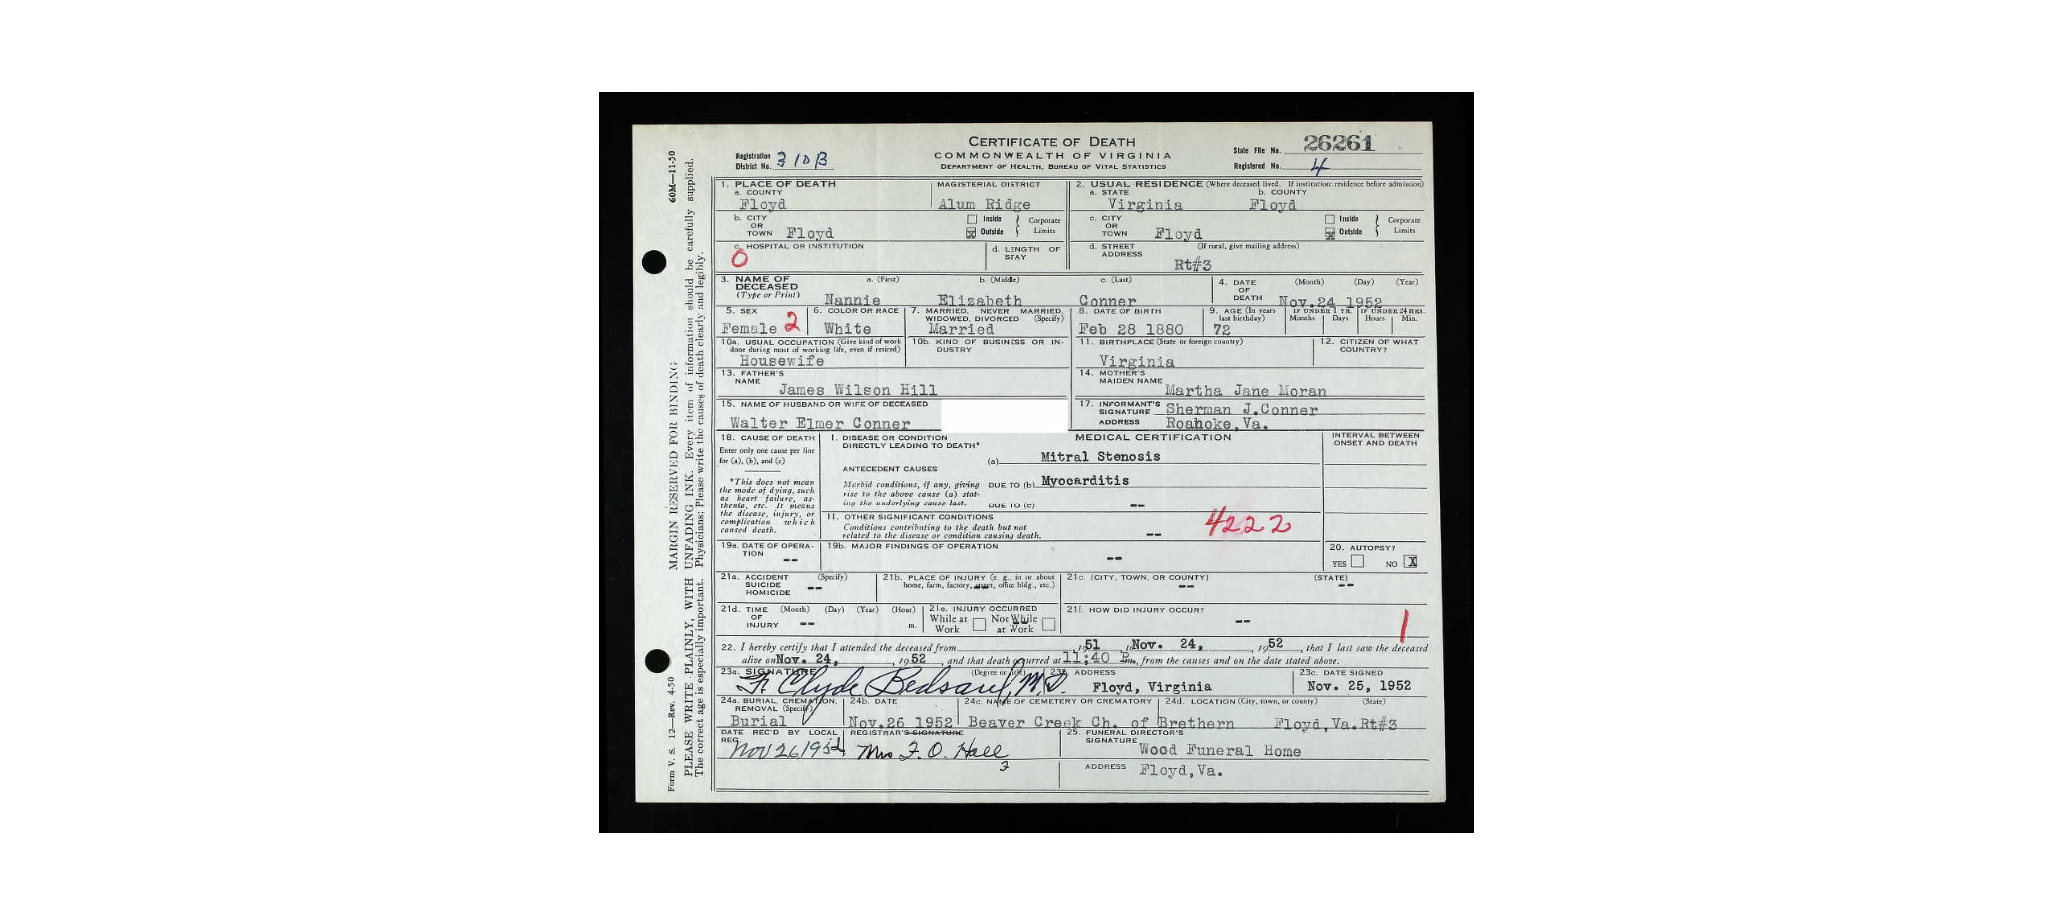 60M—11-50
MARGIN RESERVED FOR BINDING
PLEASE WRITE PLAINLY, WITH UNFADING INK. Every item of information should be carefully supplied.
The correct age is especially important. Physicians: Please write the causes of death clearly and legibly.
Form V. S. 12—Rev. 4-50
CERTIFICATE OF DEATH
COMMONWEALTH OF VIRGINIA
DEPARTMENT OF HEALTH, BUREAU OF VITAL STATISTICS
Registration District No. 310B
State File No. 26261
Registered No. 4
1. PLACE OF DEATH
a. COUNTY Floyd
MAGISTERIAL DISTRICT Alum Ridge
2. USUAL RESIDENCE (Where deceased lived. If institution: residence before admission)
a. STATE Virginia b. COUNTY Floyd
b. CITY OR TOWN Floyd
Inside
Outside X Corporate Limits
c. CITY OR TOWN Floyd
Inside
Outside X Corporate Limits
c. HOSPITAL OR INSTITUTION
0
d. LENGTH OF STAY
d. STREET ADDRESS (If rural, give mailing address)
Rt#3
3. NAME OF DECEASED (Type or Print)
a. (First) b. (Middle) c. (Last)
Nannie Elizabeth Conner
4. DATE OF DEATH (Month) (Day) (Year)
Nov.24 1952
5. SEX Female 2
6. COLOR OR RACE White
7. MARRIED, NEVER MARRIED, WIDOWED, DIVORCED (Specify) Married
8. DATE OF BIRTH Feb 28 1880
9. AGE (In years last birthday) 72
IF UNDER 1 YR. Months Days
IF UNDER 24 HRS. Hours Min.
10a. USUAL OCCUPATION (Give kind of work done during most of working life, even if retired)
Housewife
10b. KIND OF BUSINESS OR INDUSTRY
11. BIRTHPLACE (State or foreign country)
Virginia
12. CITIZEN OF WHAT COUNTRY?
13. FATHER'S NAME
James Wilson Hill
14. MOTHER'S MAIDEN NAME
Martha Jane Moran
15. NAME OF HUSBAND OR WIFE OF DECEASED
Walter Elmer Conner
17. INFORMANT'S SIGNATURE Sherman J.Conner
ADDRESS Roanoke,Va.
18. CAUSE OF DEATH
Enter only one cause per line for (a), (b), and (c)
*This does not mean the mode of dying, such as heart failure, asthenia, etc. It means the disease, injury, or complication which caused death.
MEDICAL CERTIFICATION
INTERVAL BETWEEN ONSET AND DEATH
I. DISEASE OR CONDITION DIRECTLY LEADING TO DEATH*
(a) Mitral Stenosis
ANTECEDENT CAUSES
Morbid conditions, if any, giving rise to the above cause (a) stating the underlying cause last.
DUE TO (b) Myocarditis
DUE TO (c) --
II. OTHER SIGNIFICANT CONDITIONS
Conditions contributing to the death but not related to the disease or condition causing death. --
4222
19a. DATE OF OPERATION --
19b. MAJOR FINDINGS OF OPERATION --
20. AUTOPSY?
YES NO X
21a. ACCIDENT SUICIDE HOMICIDE (Specify) --
21b. PLACE OF INJURY (e. g., in or about home, farm, factory, street, office bldg., etc.) --
21c. (CITY, TOWN, OR COUNTY) (STATE)
-- --
21d. TIME OF INJURY (Month) (Day) (Year) (Hour) m. --
21e. INJURY OCCURRED
While at Work Not While at Work --
21f. HOW DID INJURY OCCUR? --
1
22. I hereby certify that I attended the deceased from 1951 to Nov. 24, 1952, that I last saw the deceased
alive on Nov. 24, 1952, and that death occurred at 11:40 P m., from the causes and on the date stated above.
23a. SIGNATURE (Degree or title)
Clyde Bedsaul, M.D.
23b. ADDRESS Floyd, Virginia
23c. DATE SIGNED Nov. 25, 1952
24a. BURIAL, CREMATION, REMOVAL (Specify) Burial
24b. DATE Nov.26 1952
24c. NAME OF CEMETERY OR CREMATORY Beaver Creek Ch. of Brethern
24d. LOCATION (City, town, or county) (State) Floyd,Va.Rt#3
DATE REC'D BY LOCAL REG. Nov 26/952
REGISTRAR'S SIGNATURE Mrs F. O. Hall
3
25. FUNERAL DIRECTOR'S SIGNATURE Wood Funeral Home
ADDRESS Floyd,Va.